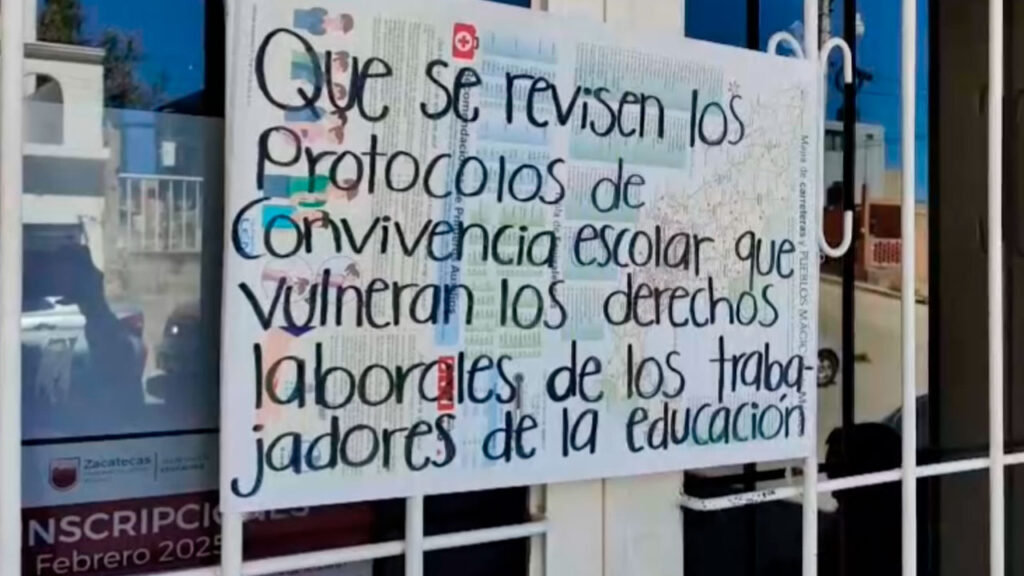 Que se revisen los
Protocolos de
Convivencia escolar que
vulneran los derechos
laborales de los traba-
jadores de la educación
Zacatecas
NSCRIPCIONES
Febrero 2025
Mapa de carreteras y PUEBLOS MÁGIC